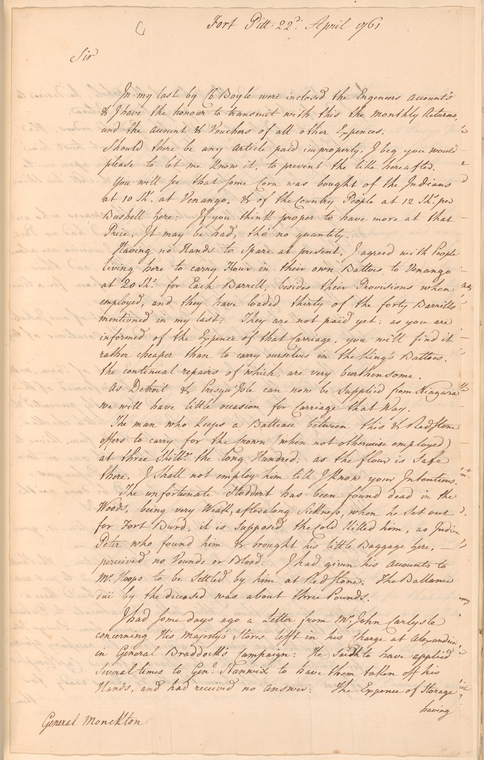 Fort Pitt 22d. April 1761
Sir
In my last by Ct Boyle were inclosed the Engineers Accounts
& I have the honour to transmit with this the Monthly Returns,
and the Account & Vouchers of all other Expences.
Should there be any Article paid improperly, I beg you would
please to let me know it, to prevent the like hereafter.
You will see that some Corn was bought of the Indians
at 10 Sh. at Venango, & of the Country People at 12 Sh. per
Bushell here: If you think proper to have more at that
Price, It may be had, tho' no quantity.
Having no Hands to spare at present, I agreed with People
living here to carry Flour in their own Battoes to Venango
at 20 Sh. for Each Barrell, besides their Provisions when
employed, and they have loaded thirty of the forty Barrells
mentioned in my last. They are not paid yet: as you are
informed of the Expence of that Carriage, you will find it
rather cheaper than to carry ourselves in the King's Battoes.
the continual repairs of which are very burthensome.
As Detroit & Presqu'Isle can now be Supplied from Niagara
we will have little occasion for Carriage that Way.
The man who keeps a Batteaa between this & Redstone
offers to carry for the Crown (when not otherwise employed)
at three Shill. the long Hundred. as the flour is Safe
there, I shall not employ him till I know your Intentions.
The unfortunate Stoddert has been found dead in the
Woods, being very Weak, after a long Sickness, when he set out
for Fort Burd, it is Supposed the Cold killed him, as Indian
Peter who found him & brought his little Baggage here,
perceived no Wounds or Blood. I had given his Accounts to
Mr. Hoops to be Settled by him at Redstone: The Ballance
due by the deceased was about three Pounds.
I had some days ago a Letter from Mr. John Carlysle
concerning His Majesty's Stores left in his Charge at Alexandria
in General Braddock's Campaign: He Said to have applied
Several times to Genl. Stanwix to have them taken off his
Hands, and had received no answer. The Expence of Storage
having
General Monckton